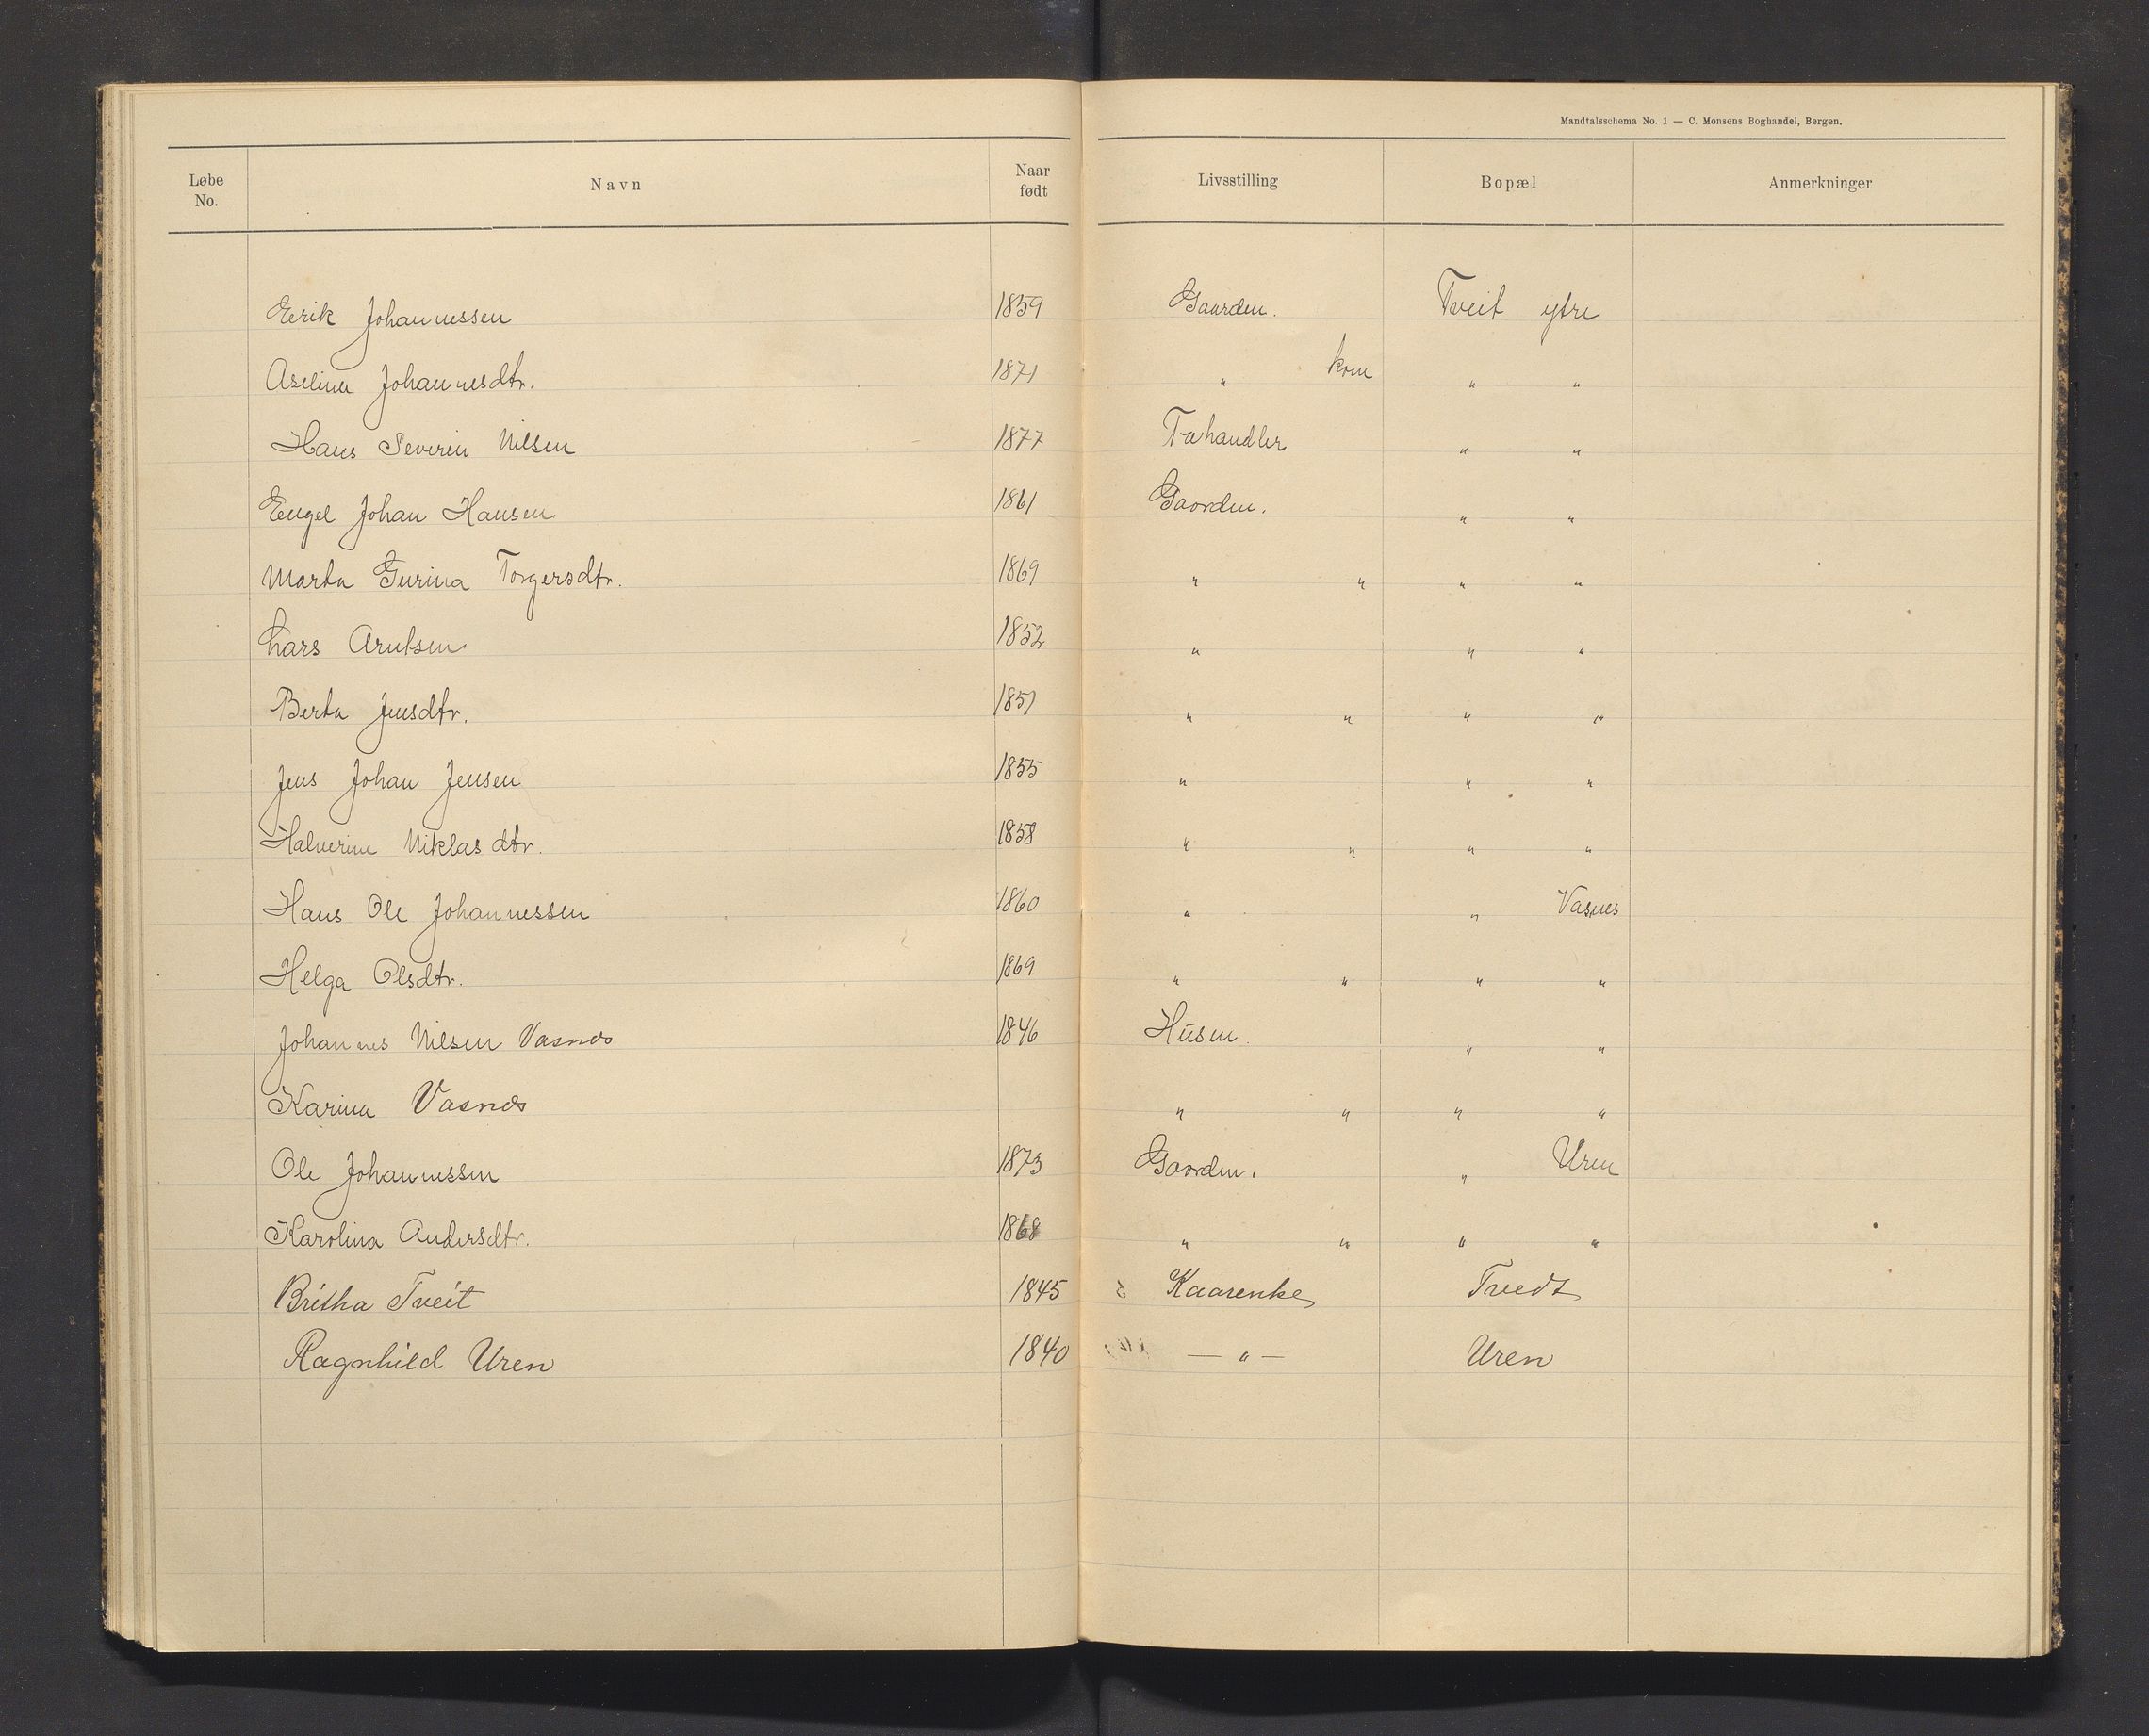 Mandtalsschema No. 1 — C. Monsens Boghandel, Bergen.
Løbe No. Navn Naar født Livsstilling Bopæl Anmerkninger
Eerik Johannessen 1859 Gaarden. Tveit ytre
Aselina Johannesdtr. 1871 " kone " "
Hans Severin Nilsen 1877 Fæhandler " "
Engel Johan Hansen 1861 Gaarden. " "
Marta Gurina Torgersdtr. 1869 " " " "
Lars Arntsen 1852 " " "
Berta Jensdtr. 1851 " " " "
Jens Johan Jensen 1855 " " "
Halverine Niklasdtr. 1858 " " " "
Hans Ole Johannessen 1860 " " Vasnes
Helga Olsdtr. 1869 " " " "
Johannes Nilsen Vasnes 1846 Husm. " "
Karina Vasnes " " " "
Ole Johannessen 1873 Gaarden. " Uren
Karolina Andersdtr. 1868 " " " "
Britha Tveit 1845 Kaarenke Tvedt
Ragnhild Uren 1840 — " — Uren